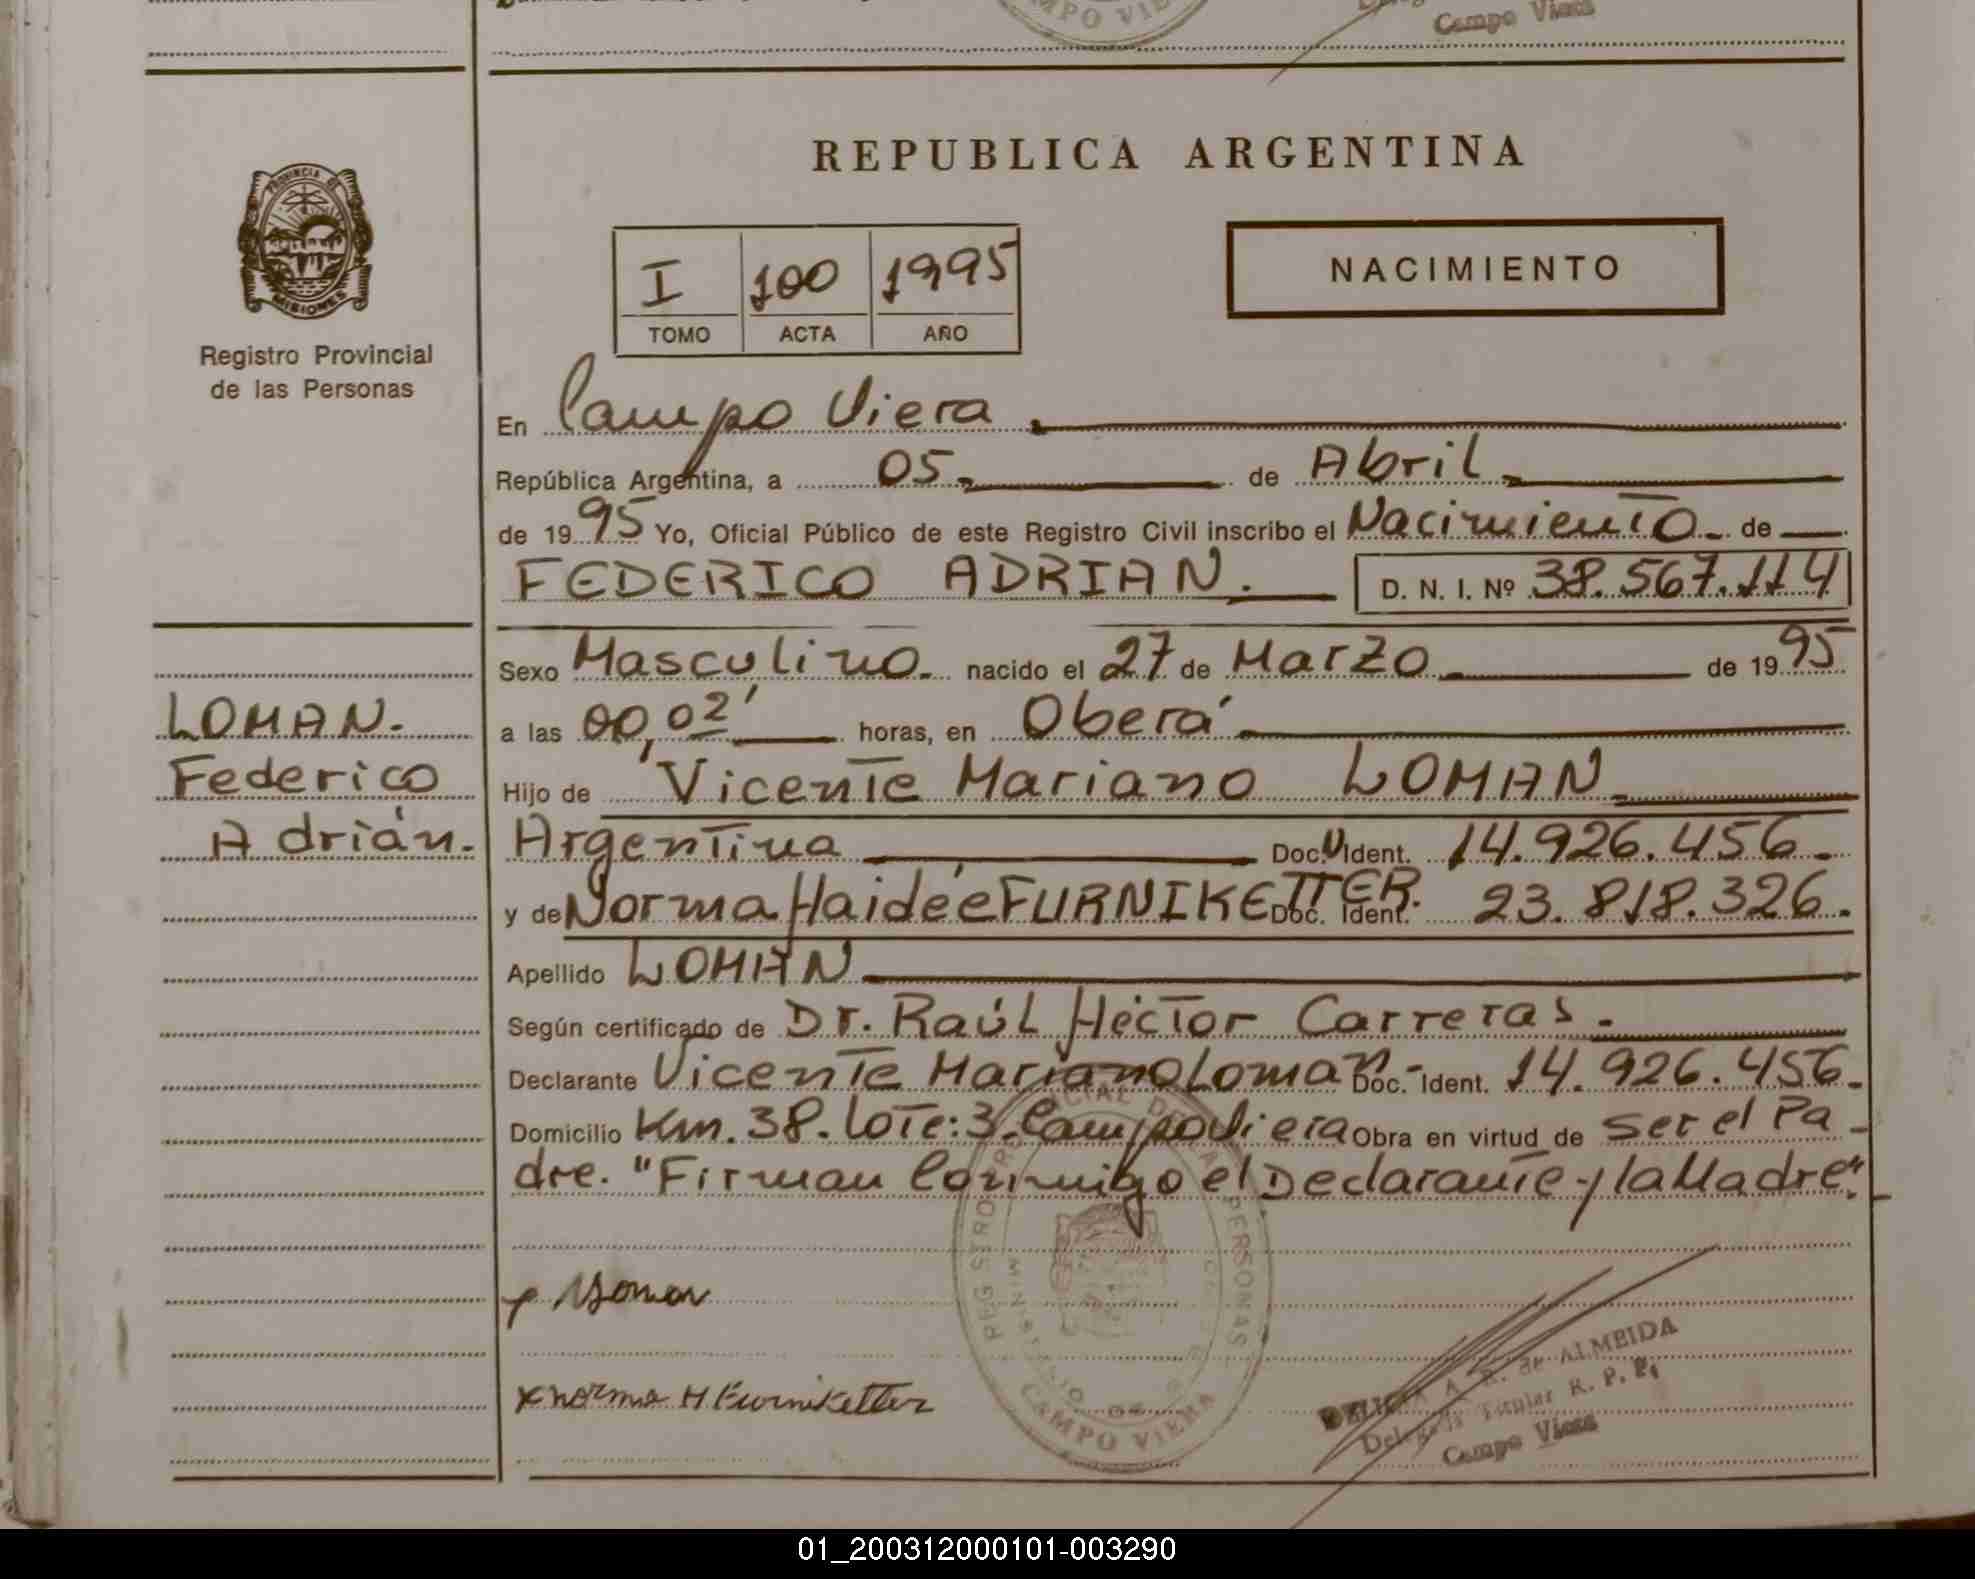 Campo Viera
REPUBLICA ARGENTINA
PROVINCIA DE
MISIONES
Registro Provincial
de las Personas
I 100 1995
TOMO ACTA AÑO
NACIMIENTO
En Campo Viera
República Argentina, a 05 de Abril
de 1995 Yo, Oficial Público de este Registro Civil inscribo el Nacimiento de
FEDERICO ADRIAN. D. N. I. Nº 38.567.114
Sexo Masculino. nacido el 27 de Marzo de 1995
a las 00,02' horas, en Oberá
Hijo de Vicente Mariano LOMAN
Argentina Doc. U Ident. 14.926.456
y de Norma Haidée FURNIKETTER. Doc. Ident. 23.818.326.
Apellido LOMAN
Según certificado de Dr. Raúl Héctor Carreras.
Declarante Vicente Mariano Loman Doc. Ident. 14.926.456.
Domicilio Km. 38. Lote: 3. Campo Viera Obra en virtud de ser el Pa-
dre. "Firman Conmigo el Declarante y la Madre".
LOMAN.
Federico
Adrián.
x norma H Furniketter
CAMPO VIERA
A. R. de ALMEIDA
Delegada Titular R. P. P.
Campo Viera
01_200312000101-003290